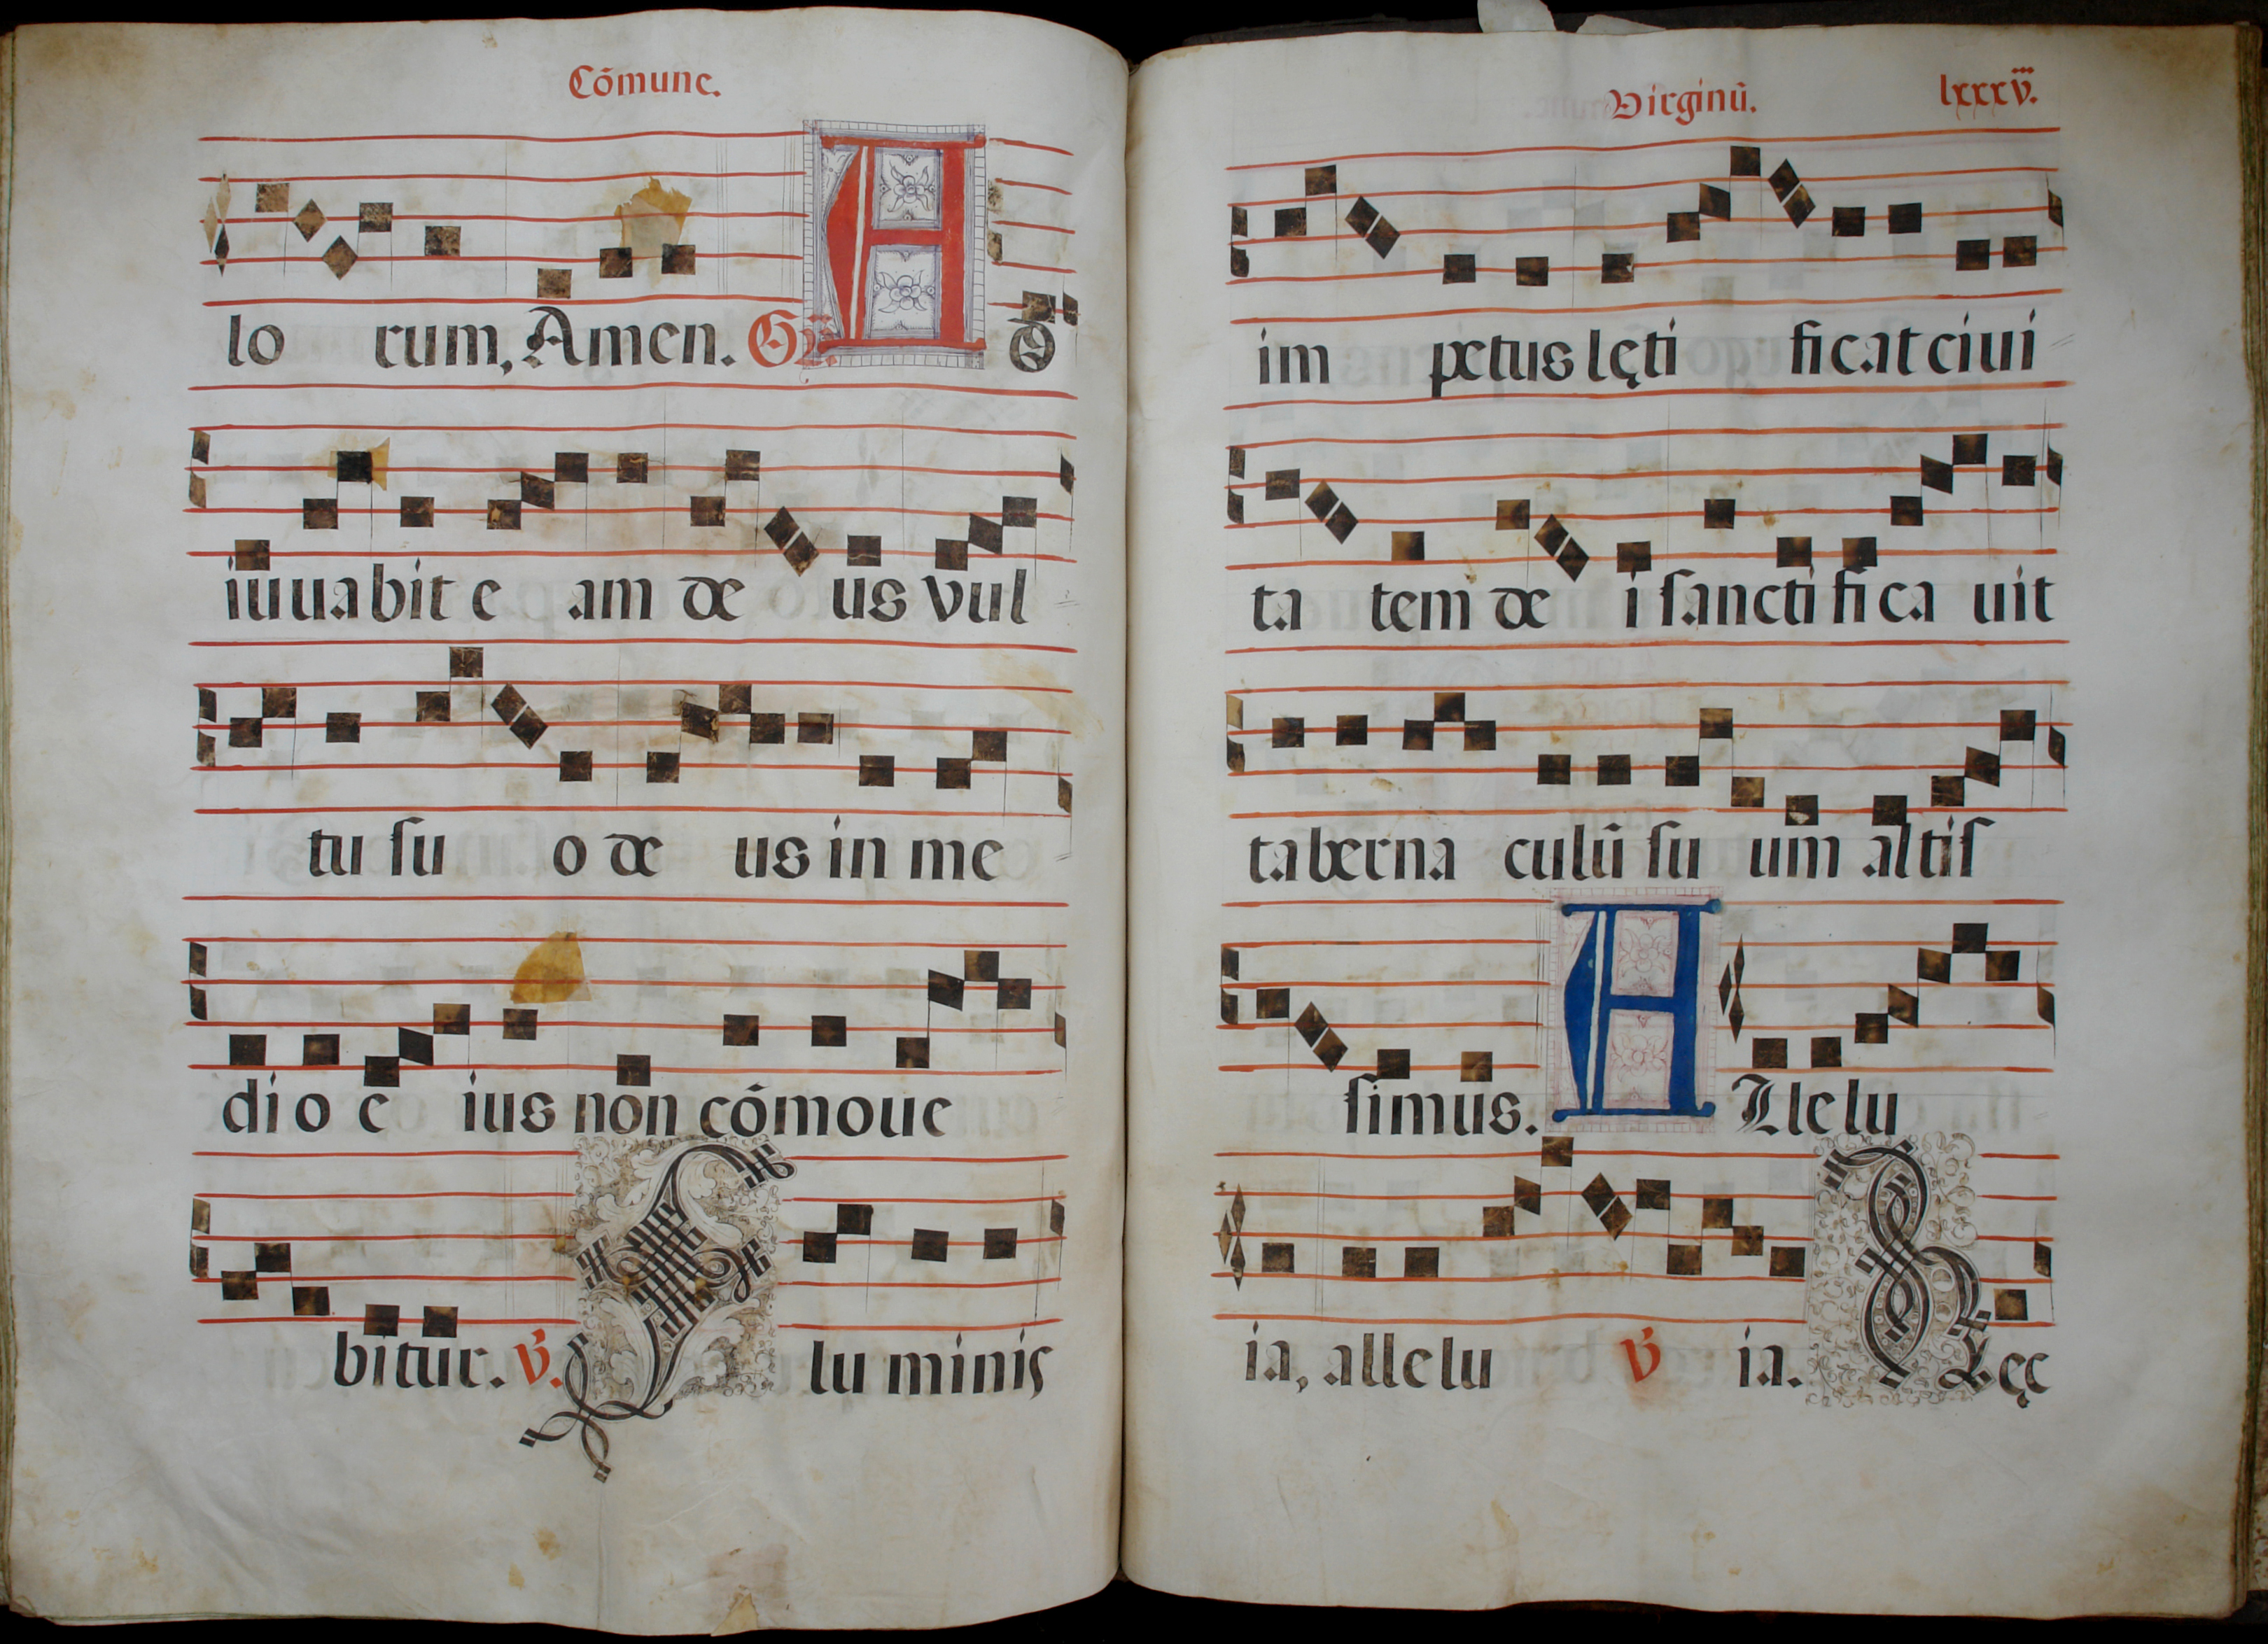 Cõmune.
lo rum, Amen. Gr̃. A D
iuuabit e am de us vul
tu su o de us in me
di o e ius non cõmoue
bitur. v̓. F lu minis
Virginũ. lxxxv̈.
im petus lęti ficat ciui
ta tem de i sancti fi ca uit
taberna culũ su um altis
simus. A Lle lu
ia, alle lu v̓ ia. H Ęc